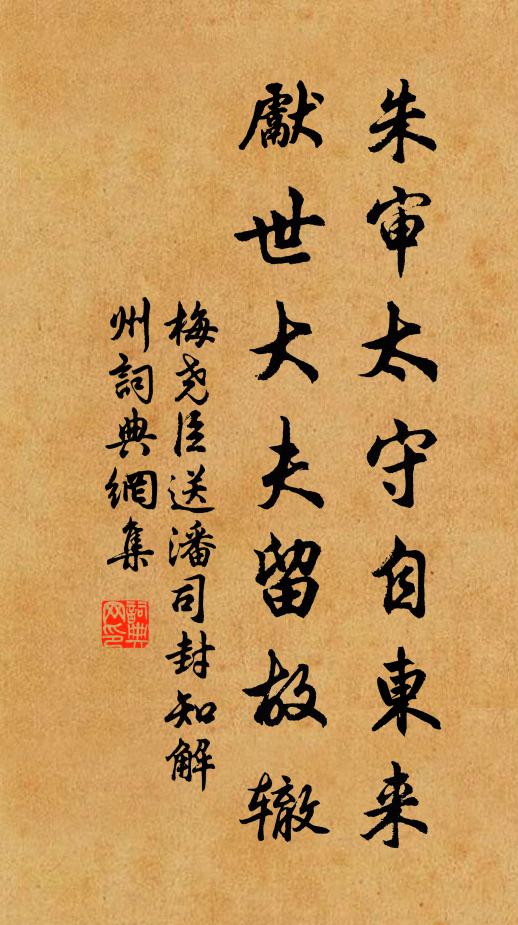 朱审太守自東来
獻世大夫留故辙
梅尧臣送潘司封知解
州詞典網集
詞典
网印